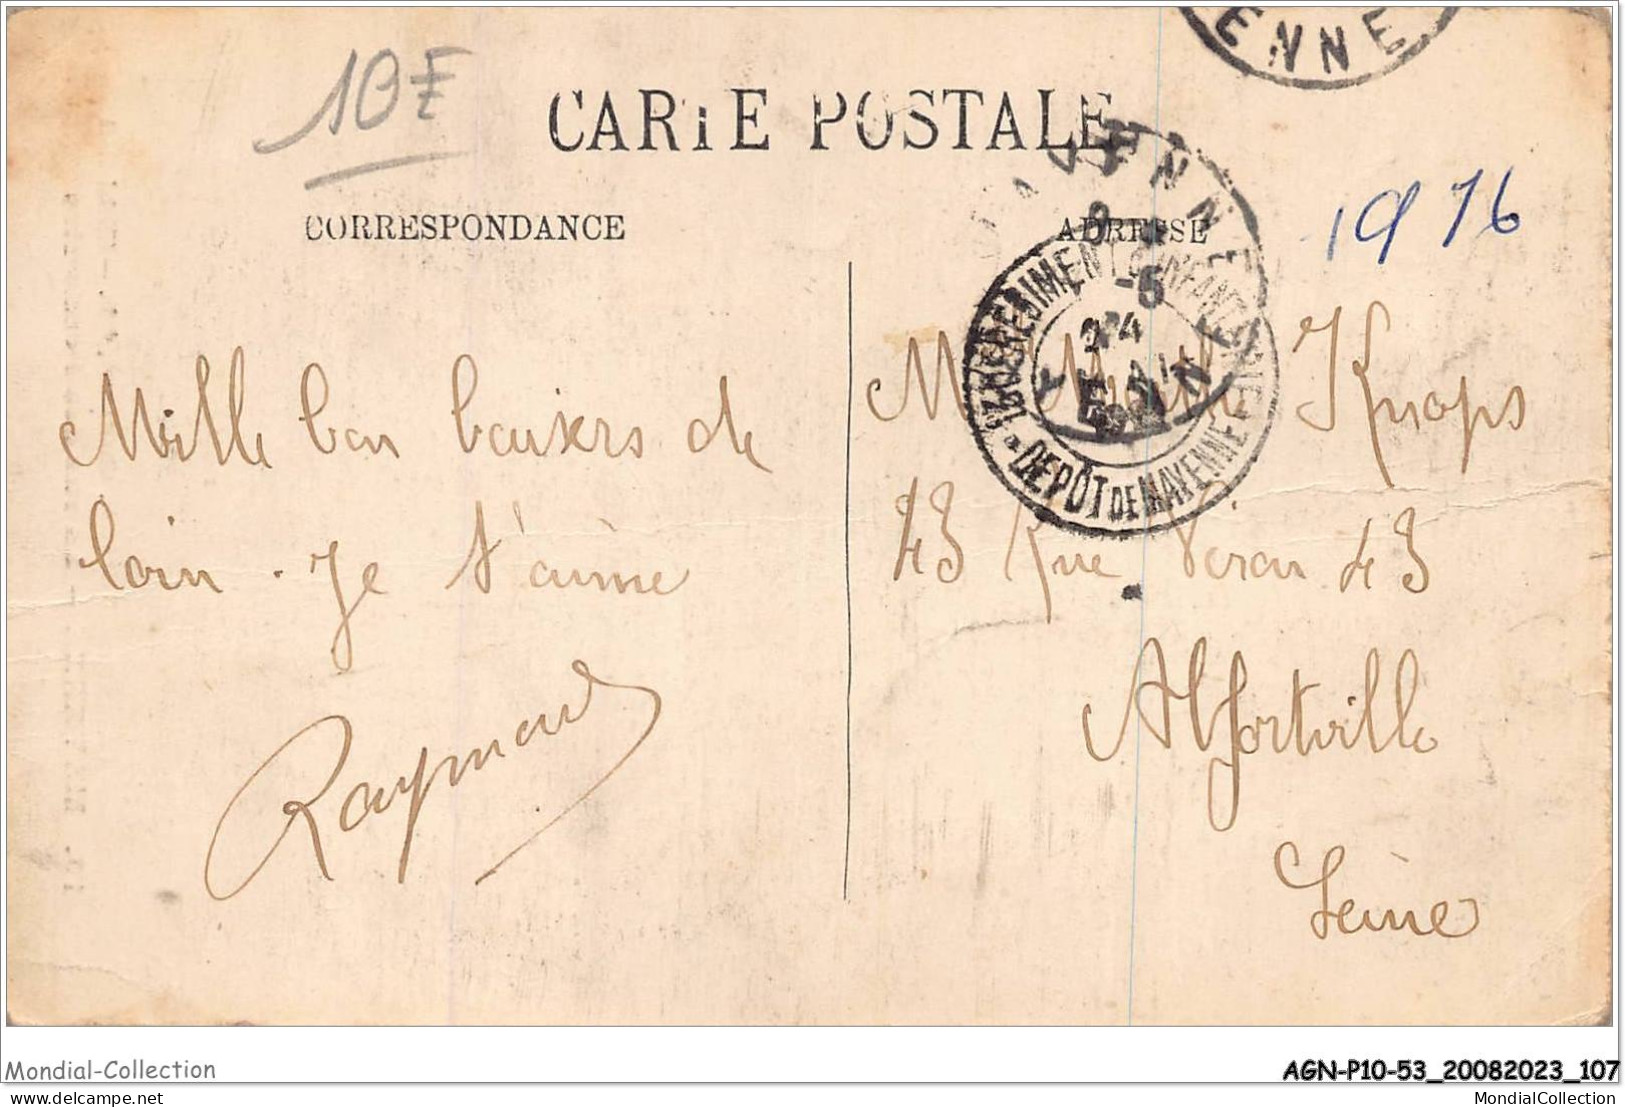 ENNE
10F
CARTE POSTALE
CORRESPONDANCE
ADRESSE
1916
REGIMENT D'INFANTERIE
DEPÔT DE MAYENNE
Mille bon baisers de
loin. Je t'aime
Raymond
M Knops
43 Rue Véron 43
Alfortville
Seine
Mondial-Collection
AGN-P10-53_20082023_107
delcampe.net
MondialCollection